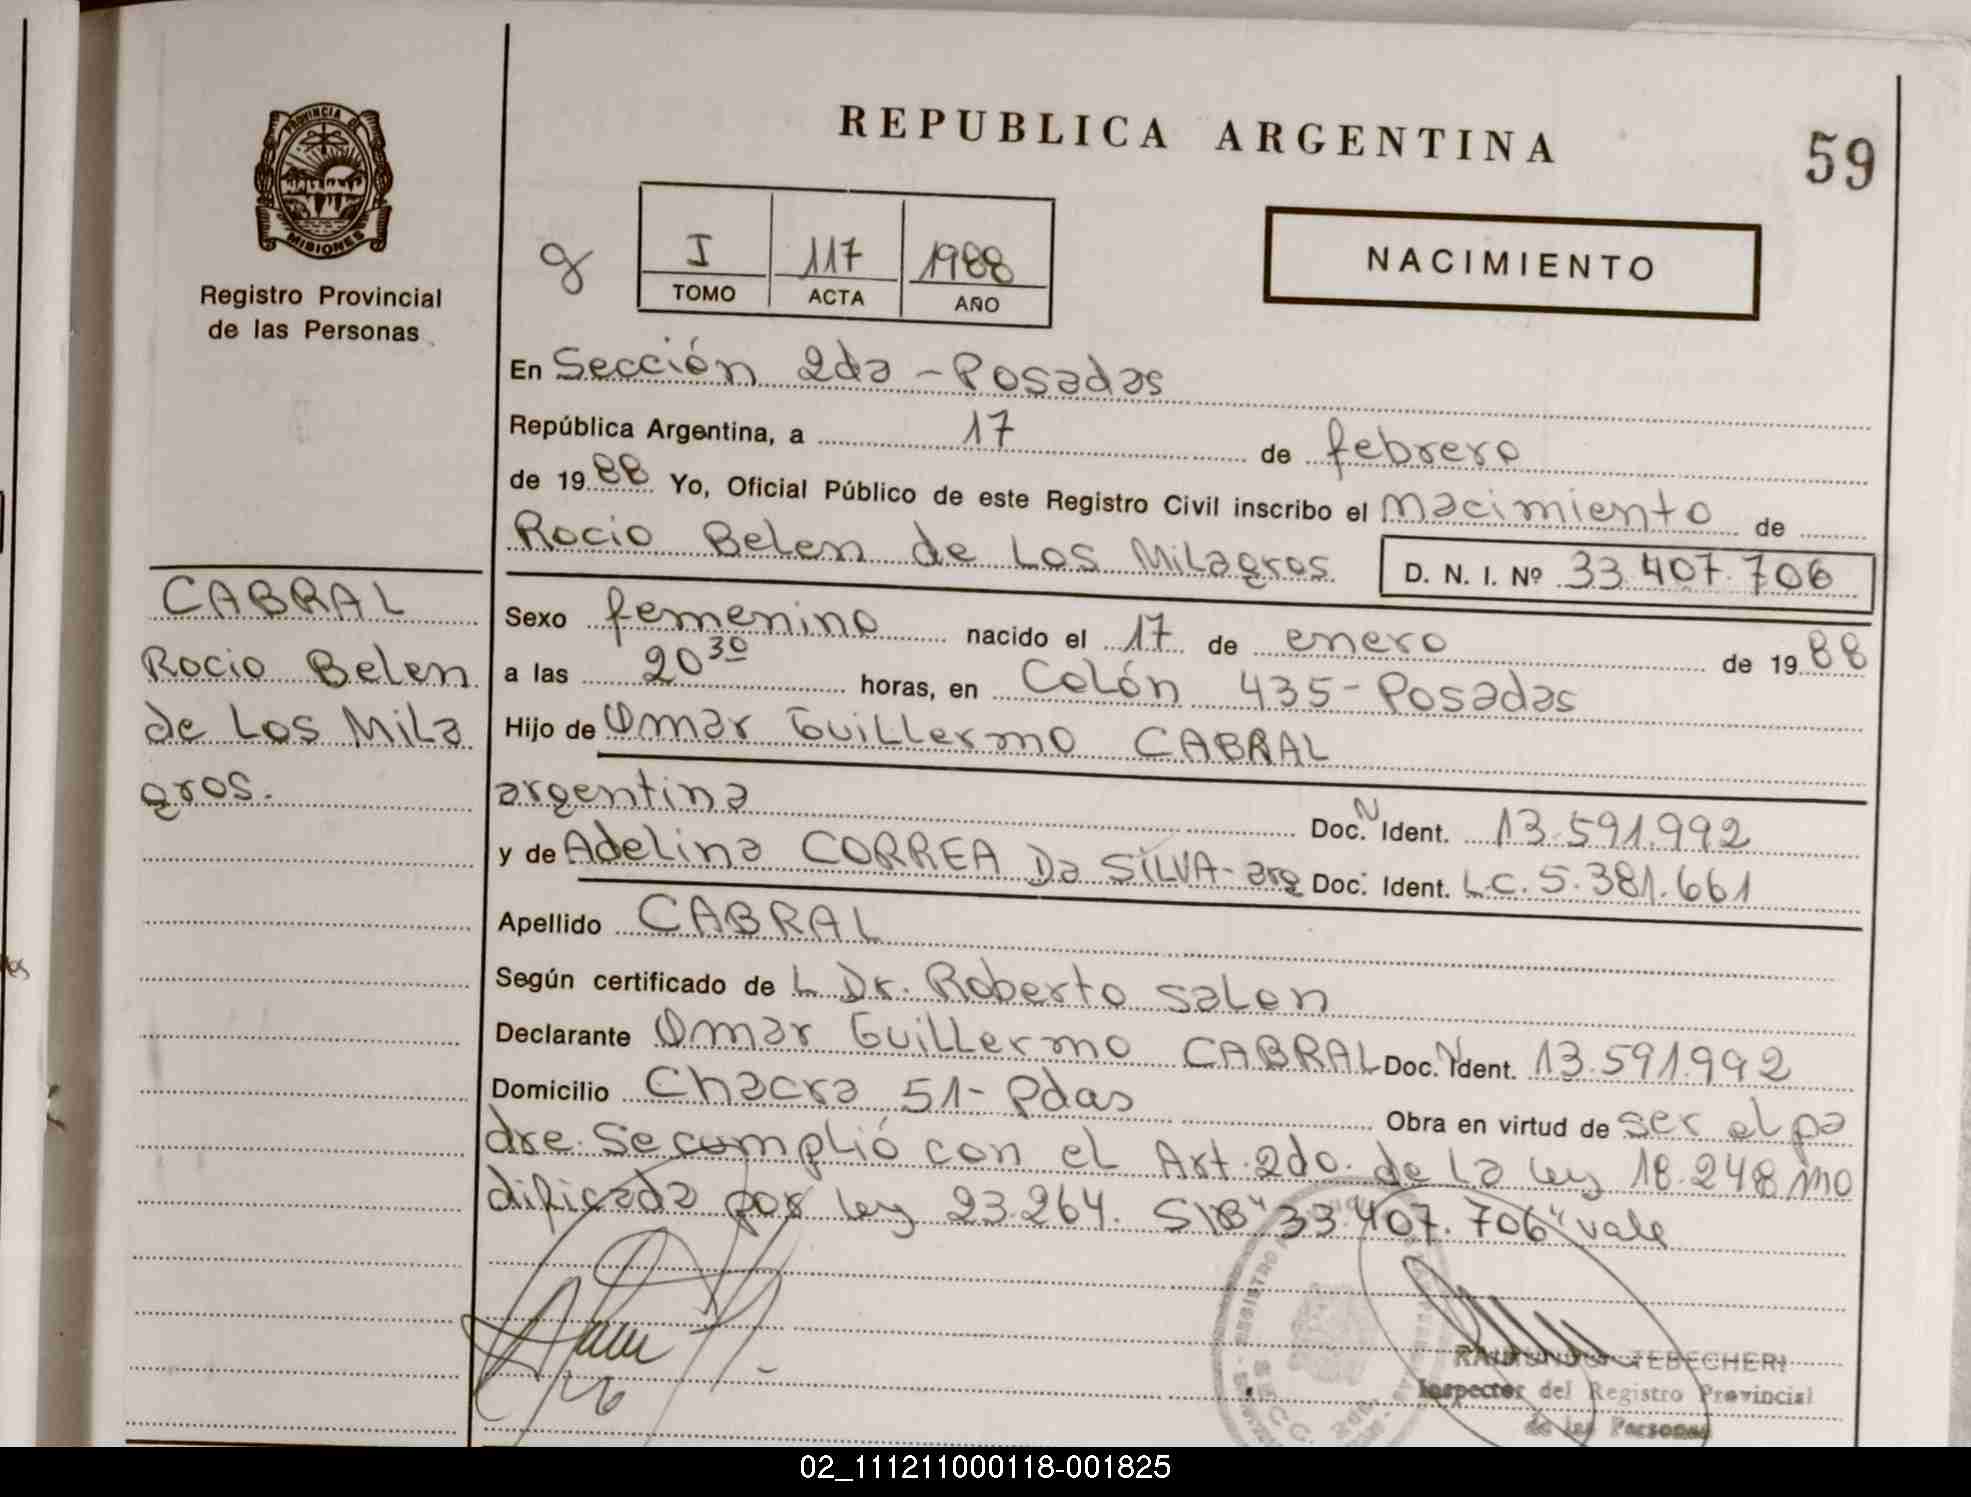 REPUBLICA ARGENTINA
59
PROVINCIA DE
MISIONES
Registro Provincial
de las Personas
I 117 1988
TOMO ACTA AÑO
NACIMIENTO
En Sección 2da - Posadas
República Argentina, a 17 de febrero
de 1988 Yo, Oficial Público de este Registro Civil inscribo el Nacimiento de
Rocio Belen de Los Milagros D. N. I. Nº 33.407.706
CABRAL
Rocio Belen
de Los Mila
gros.
Sexo femenino nacido el 17 de enero de 1988
a las 20 30 horas, en Colón 435 - Posadas
Hijo de Omar Guillermo CABRAL
argentina Doc. N Ident. 13.591.992
y de Adelina CORREA Da SILVA - arg Doc. Ident. L.C. 5.381.661
Apellido CABRAL
Según certificado de L Dr. Roberto Salen
Declarante Omar Guillermo CABRAL Doc. N Ident. 13.591.992
Domicilio Chacra 51 - Pdas Obra en virtud de ser el pa
dre. Se cumplió con el Art. 2do. de La Ley 18.248 mo
dificada por Ley 23.264. S/B "33.407.706" vale
RAIMUNDO TEBECHERI
Inspector del Registro Provincial
de las Personas
02_111211000118-001825